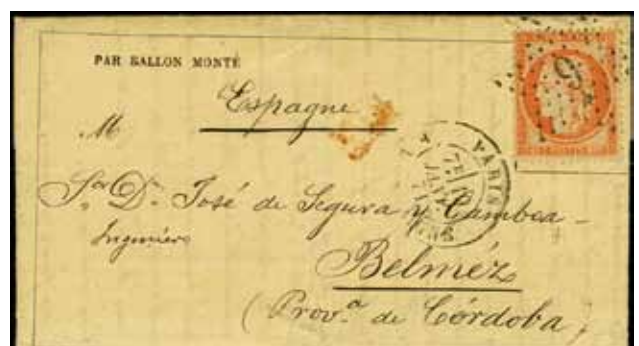 PAR BALLON MONTÉ
Espagne
M
Sr. Dn. José de Segura y Gamboa -
Ingeniero
Belméz
(Prov.a de Córdoba)
PARIS